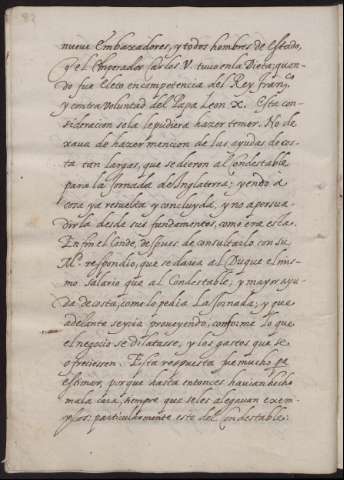 82
nueve Embaxadores, y todos hombres de estado,
q̃ el Emperador Carlos V. tuvo en la Dieta; quan-
do fue electo en competencia del Rey Fran.co
y contra voluntad del Papa Leon X. Esta con-
sideracion sola le pudiera hazer temer. No de
xava de hazer mencion de las ayudas de cos-
ta tan largas, que se dieron al Condestable
para la Jornada de Inglaterra; yendo a
cosa ya resuelta y concluyda, y no a persua-
dirla desde sus fundamentos, como era esta.
En fin el Conde, despues de consultarlo con su
M.d respondio, que se dava al Duque el mis-
mo salario que al Condestable; y mayor ayu-
da de costa, como lo pedia la Jornada; y que
adelante se yria proveyendo, conforme lo que
el negocio se dilatasse, y los gastos que se
ofreciessen. Esta respuesta fue mucho de
estimar, porque hasta entonces havian hecho
mala cara, siempre que se les alegavan exem-
plos: particularmente este del Condestable: